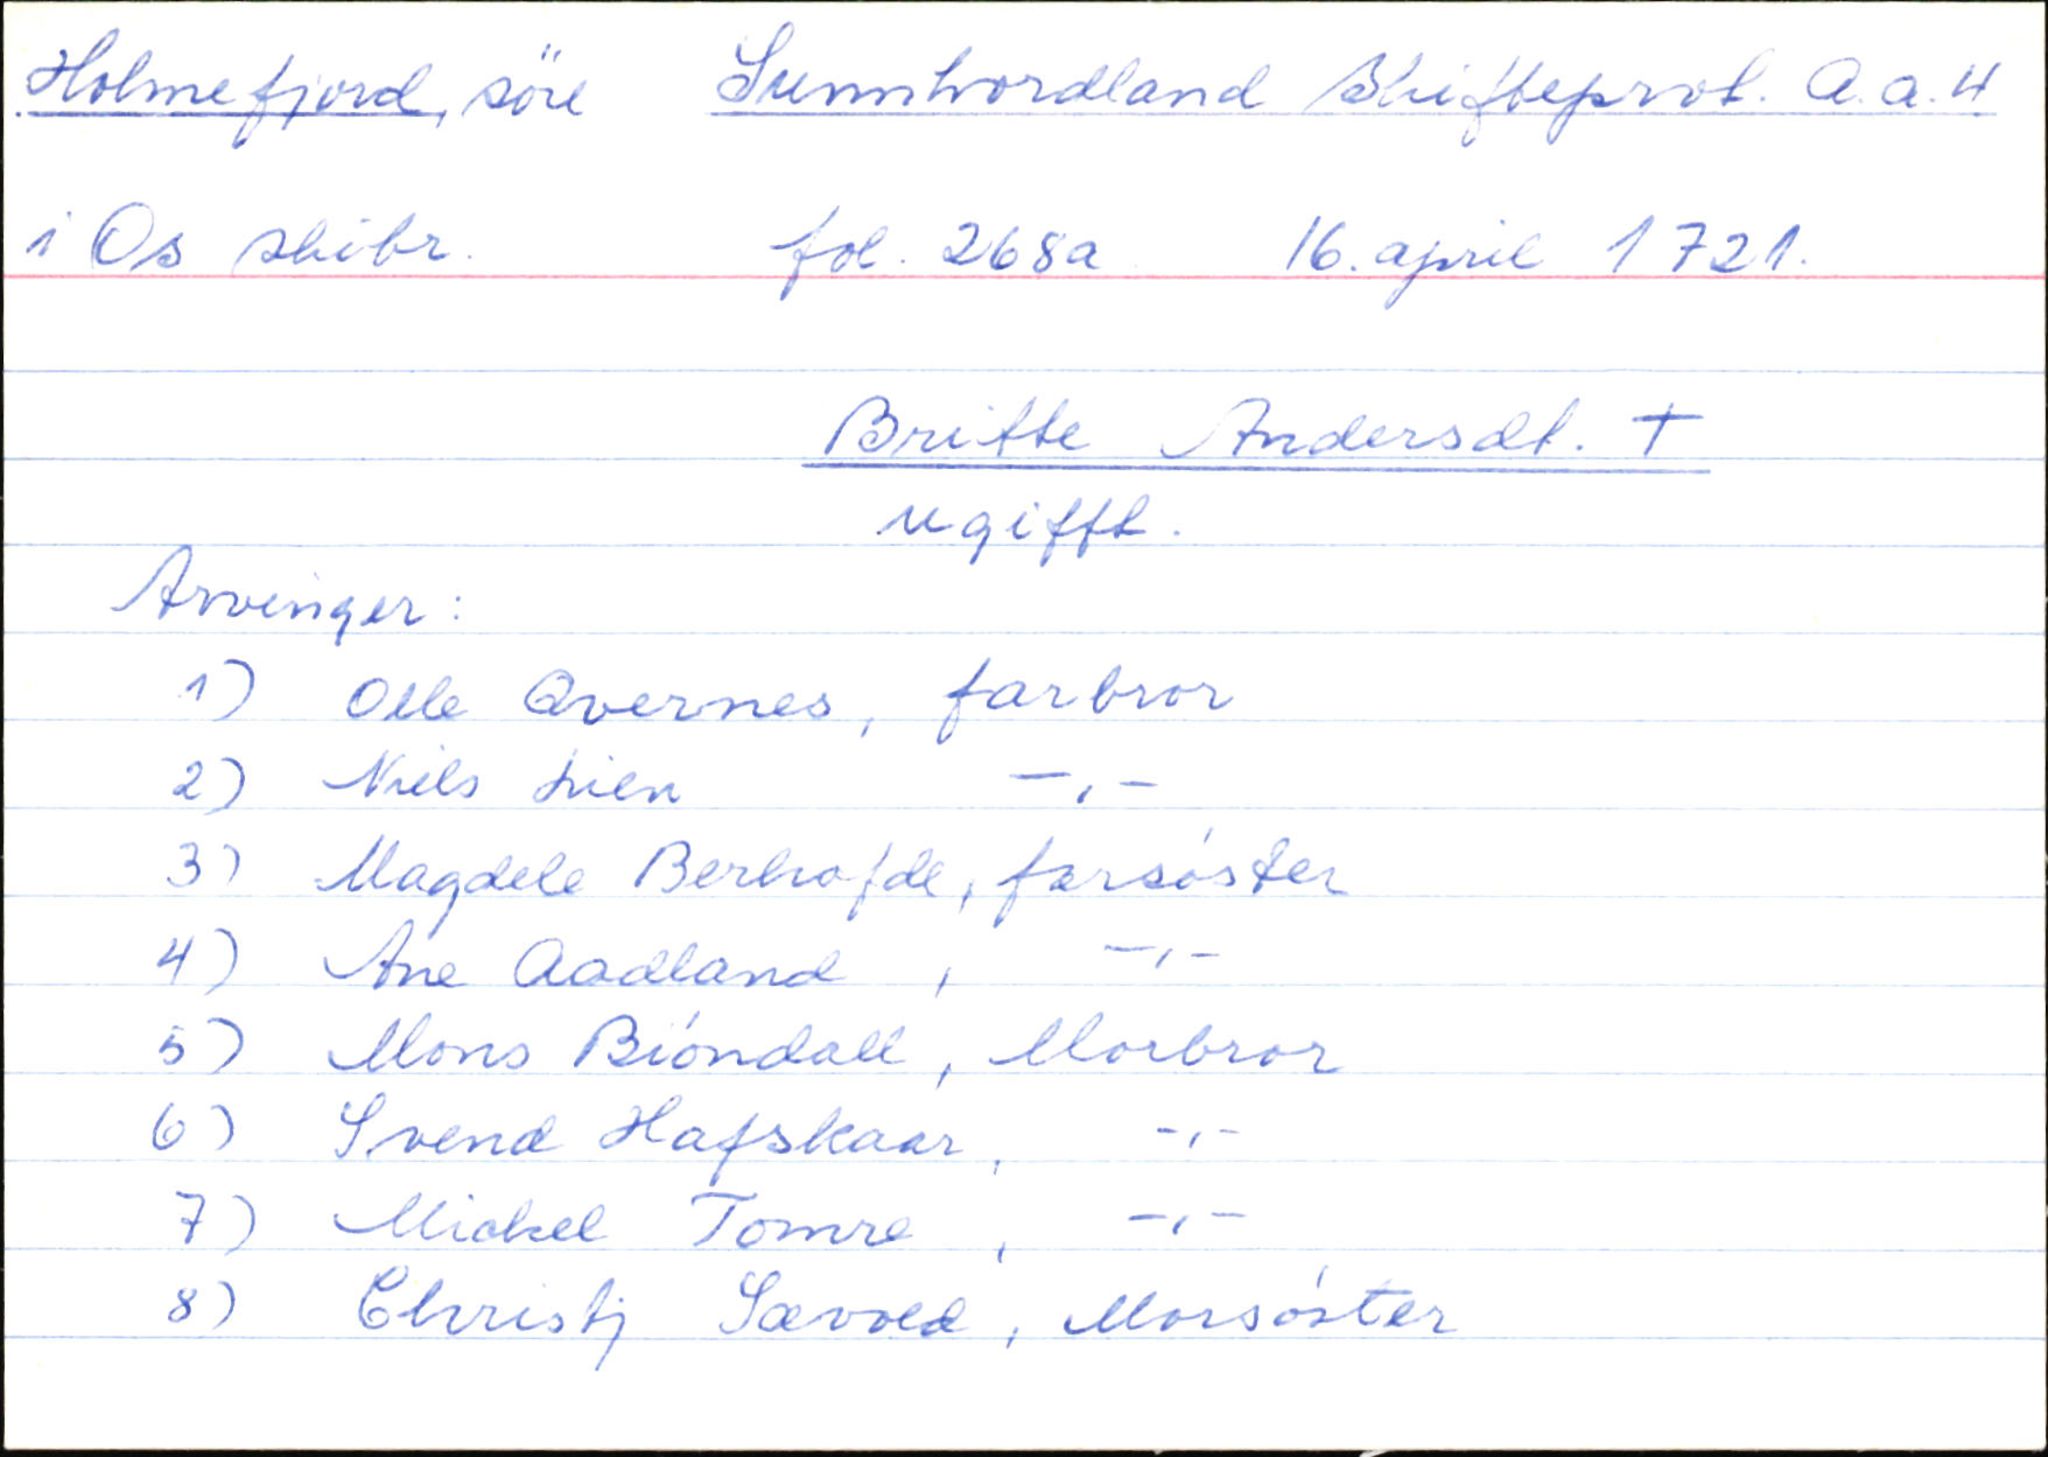 Holmefjord, söre Sunnhordland Skifteprot. A.a.4
i Os skibr. fol. 268a 16. april 1721.
Britte Andersdt. †
ugifft.
Arvinger:
1) Olle Qvernes, farbror
2) Niels Lien -,-
3) Magdele Berhofde, farsöster
4) Ane Aadland, -,-
5) Mons Bióndall, Morbror
6) Svend Hafskaar, -,-
7) Mickel Tomre, -,-
8) Christj Sævold, Morsóster